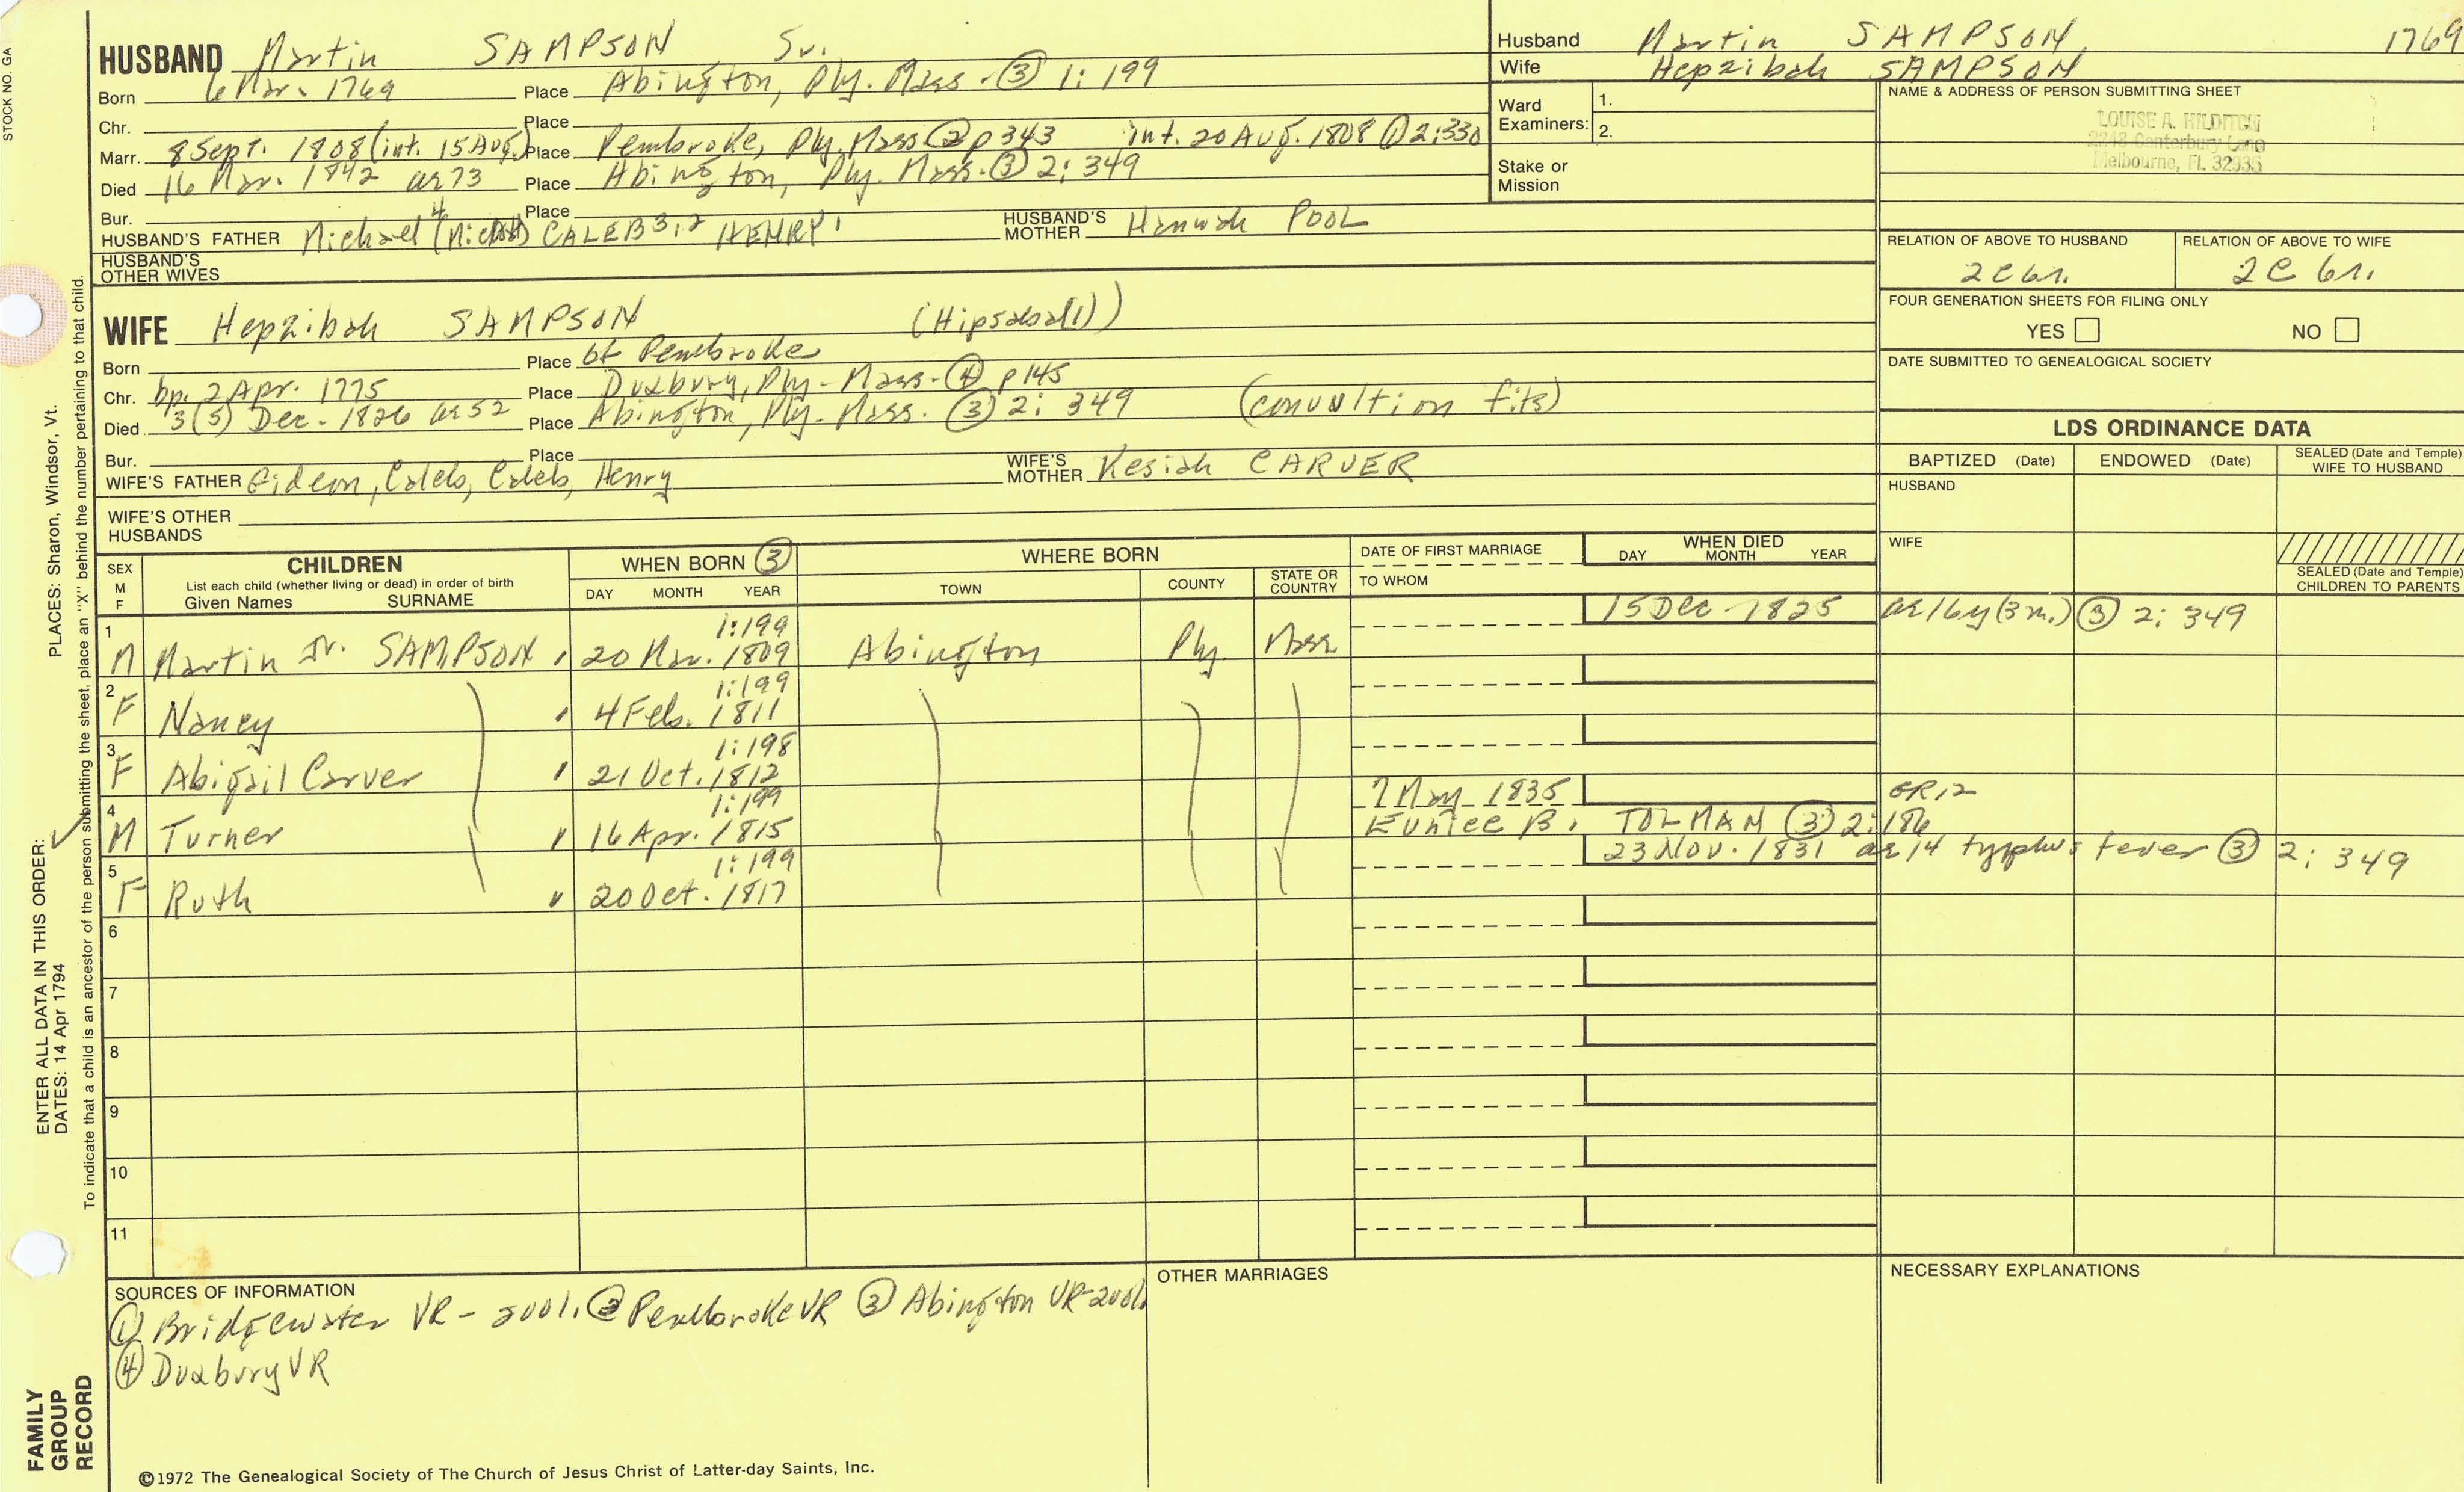 STOCK NO. GA
HUSBAND Martin SAMPSON Sr.
Born 6 Mar. 1769 Place Abington, Ply. Mass. ③ 1:199
Chr. Place
Marr. 8 Sept. 1808 (int. 15 Aug.) Place Pembroke, Ply. Mass. ② p343 int. 20 Aug. 1808 ① 2:330
Died 16 Mar. 1842 ae 73 Place Abington, Ply. Mass. ③ 2:349
Bur. Place
HUSBAND'S FATHER Michael 4 CALEB 3,2 HENRY 1 HUSBAND'S MOTHER Hannah POOL
HUSBAND'S OTHER WIVES
Husband Martin SAMPSON, 1769
Wife Hepzibah SAMPSON
Ward Examiners: 1.
2.
Stake or Mission
NAME & ADDRESS OF PERSON SUBMITTING SHEET
LOUISE A. HILDITCH
2248 Canterbury Lane
Melbourne, FL 32935
RELATION OF ABOVE TO HUSBAND RELATION OF ABOVE TO WIFE
2C 6r. 2C 6r.
FOUR GENERATION SHEETS FOR FILING ONLY
YES NO
DATE SUBMITTED TO GENEALOGICAL SOCIETY
WIFE Hepzibah SAMPSON (Hipsaba(1))
Born Place of Pembroke
Chr. bp. 2 Apr. 1775 Place Duxbury, Ply. Mass. ④ p145
Died 3(5) Dec. 1826 ae 52 Place Abington, Ply. Mass. ③ 2:349 (convultion fits)
Bur. Place
WIFE'S FATHER Gideon, Caleb, Caleb, Henry WIFE'S MOTHER Kesiah CARVER
WIFE'S OTHER HUSBANDS
LDS ORDINANCE DATA
BAPTIZED (Date) ENDOWED (Date) SEALED (Date and Temple) WIFE TO HUSBAND
HUSBAND
WIFE
SEALED (Date and Temple) CHILDREN TO PARENTS
SEX M F CHILDREN List each child (whether living or dead) in order of birth Given Names SURNAME
WHEN BORN ③ DAY MONTH YEAR
WHERE BORN TOWN COUNTY STATE OR COUNTRY
DATE OF FIRST MARRIAGE TO WHOM
WHEN DIED DAY MONTH YEAR
1 1:199 15 Dec. 1825 ae 16y (3m.) ③ 2:349
M Martin Jr. SAMPSON 20 Mar. 1809 Abington Ply. Mass
2 1:199
F Nancy 4 Feb. 1811
3 1:198
F Abigail Carver 21 Oct. 1812
4 1:199 7 May 1835 GR12
M Turner 16 Apr. 1815 Eunice B. TOLMAN ③ 2:186
5 1:199 23 Nov. 1831 ae 14 typhus fever ③ 2:349
F Ruth 20 Oct. 1817
6
7
8
9
10
11
SOURCES OF INFORMATION
① Bridgewater VR - 2vol. ② Pembroke VR ③ Abington VR-2vol.
④ Duxbury VR
OTHER MARRIAGES
NECESSARY EXPLANATIONS
©1972 The Genealogical Society of The Church of Jesus Christ of Latter-day Saints, Inc.
FAMILY GROUP RECORD
ENTER ALL DATA IN THIS ORDER:
DATES: 14 Apr 1794
PLACES: Sharon, Windsor, Vt.
To indicate that a child is an ancestor of the person submitting the sheet, place an "X" behind the number pertaining to that child.